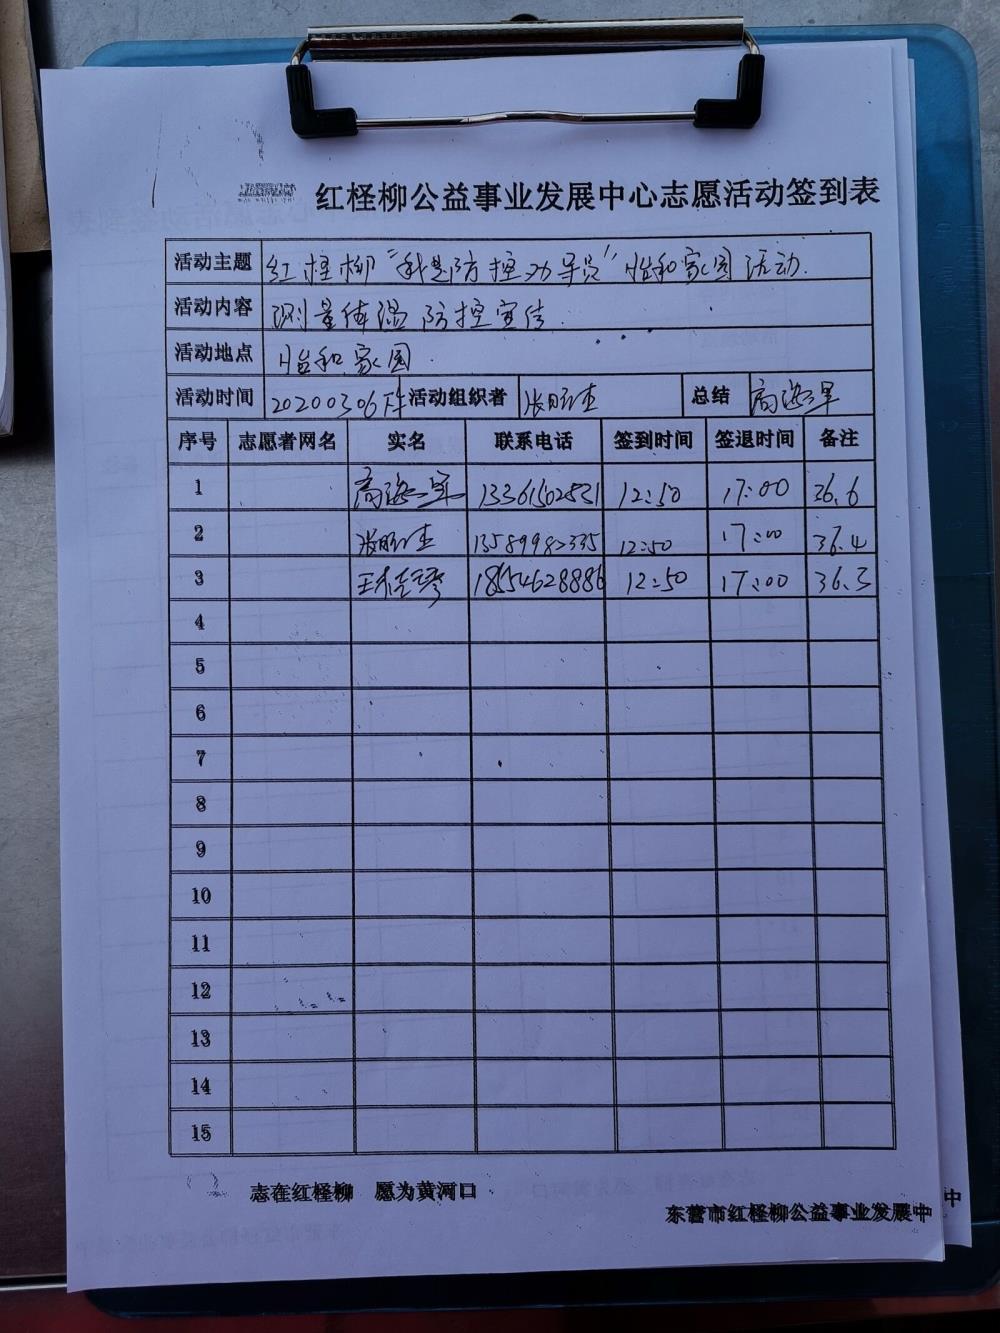 红柽柳公益事业发展中心志愿活动签到表
活动主题 红柽柳“我是防控劝导员”怡和家园活动.
活动内容 测量体温 防控宣传.
活动地点 怡和家园.
活动时间 20200306下午 活动组织者 总结 高海军
序号 志愿者网名 实名 联系电话 签到时间 签退时间 备注
1 高海军 12:50 17:00 36.6
2 12:50 17:00 36.4
3 18554628886 12:50 17:00 36.3
4
5
6
7
8
9
10
11
12
13
14
15
志在红柽柳 愿为黄河口
东营市红柽柳公益事业发展中
中